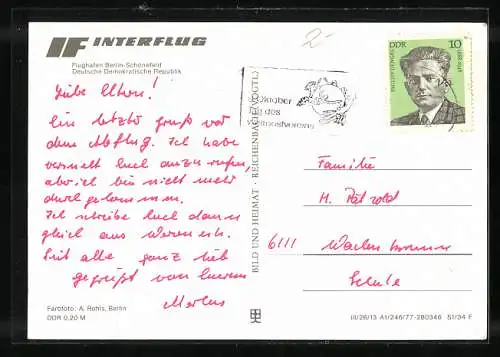 IF INTERFLUG
Flughafen Berlin-Schönefeld
Deutsche Demokratische Republik
Liebe Eltern!
Ein letzter Gruß vor
dem Abflug. Ich habe
versucht Euch anzurufen,
aber ich bin nicht mehr
durchgekommen.
Ich schreibe Euch dann
gleich aus
Seid alle ganz lieb
gegrüßt von Eurem
Farbfoto: A. Rohls, Berlin
DDR 0,20 M
BILD UND HEIMAT · REICHENBACH (VOGTL)
2-
9. Oktober
Tag des
Weltpostvereins
DDR 10
Familie
H. Pätzold
6111
Schule
III/26/13 A1/246/77-280346 S1/34 F